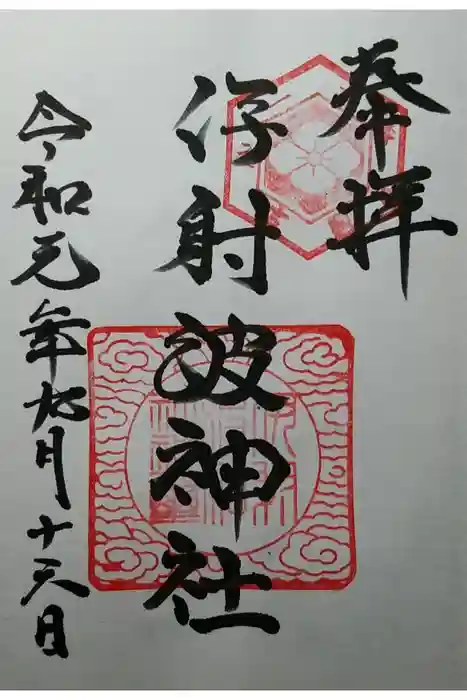 奉拝
伊射波神社
令和元年九月十日